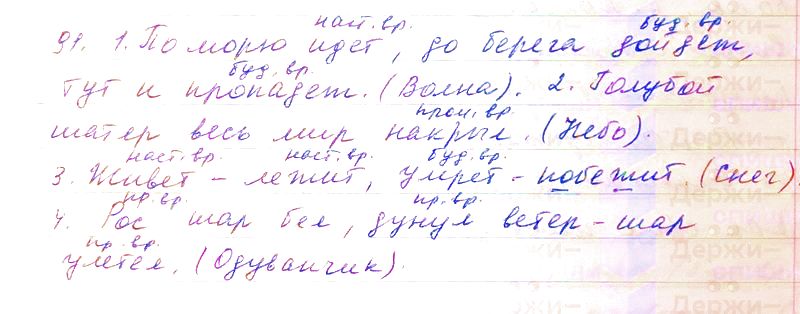 наст.вр. буд. вр.
91. 1. По морю идет, до берега дойдет,
буд. вр.
тут и пропадет. (Волна). 2. Голубой
прош. вр.
шатер весь мир накрыл. (Небо).
наст. вр. наст. вр. буд. вр.
3. Живет - лежит, умрет - побежит. (Снег).
пр. вр. пр. вр.
4. Рос шар бел, дунул ветер - шар
пр. вр.
улетел. (Одуванчик).
Держи—
Держи—
Держи—
Держи—